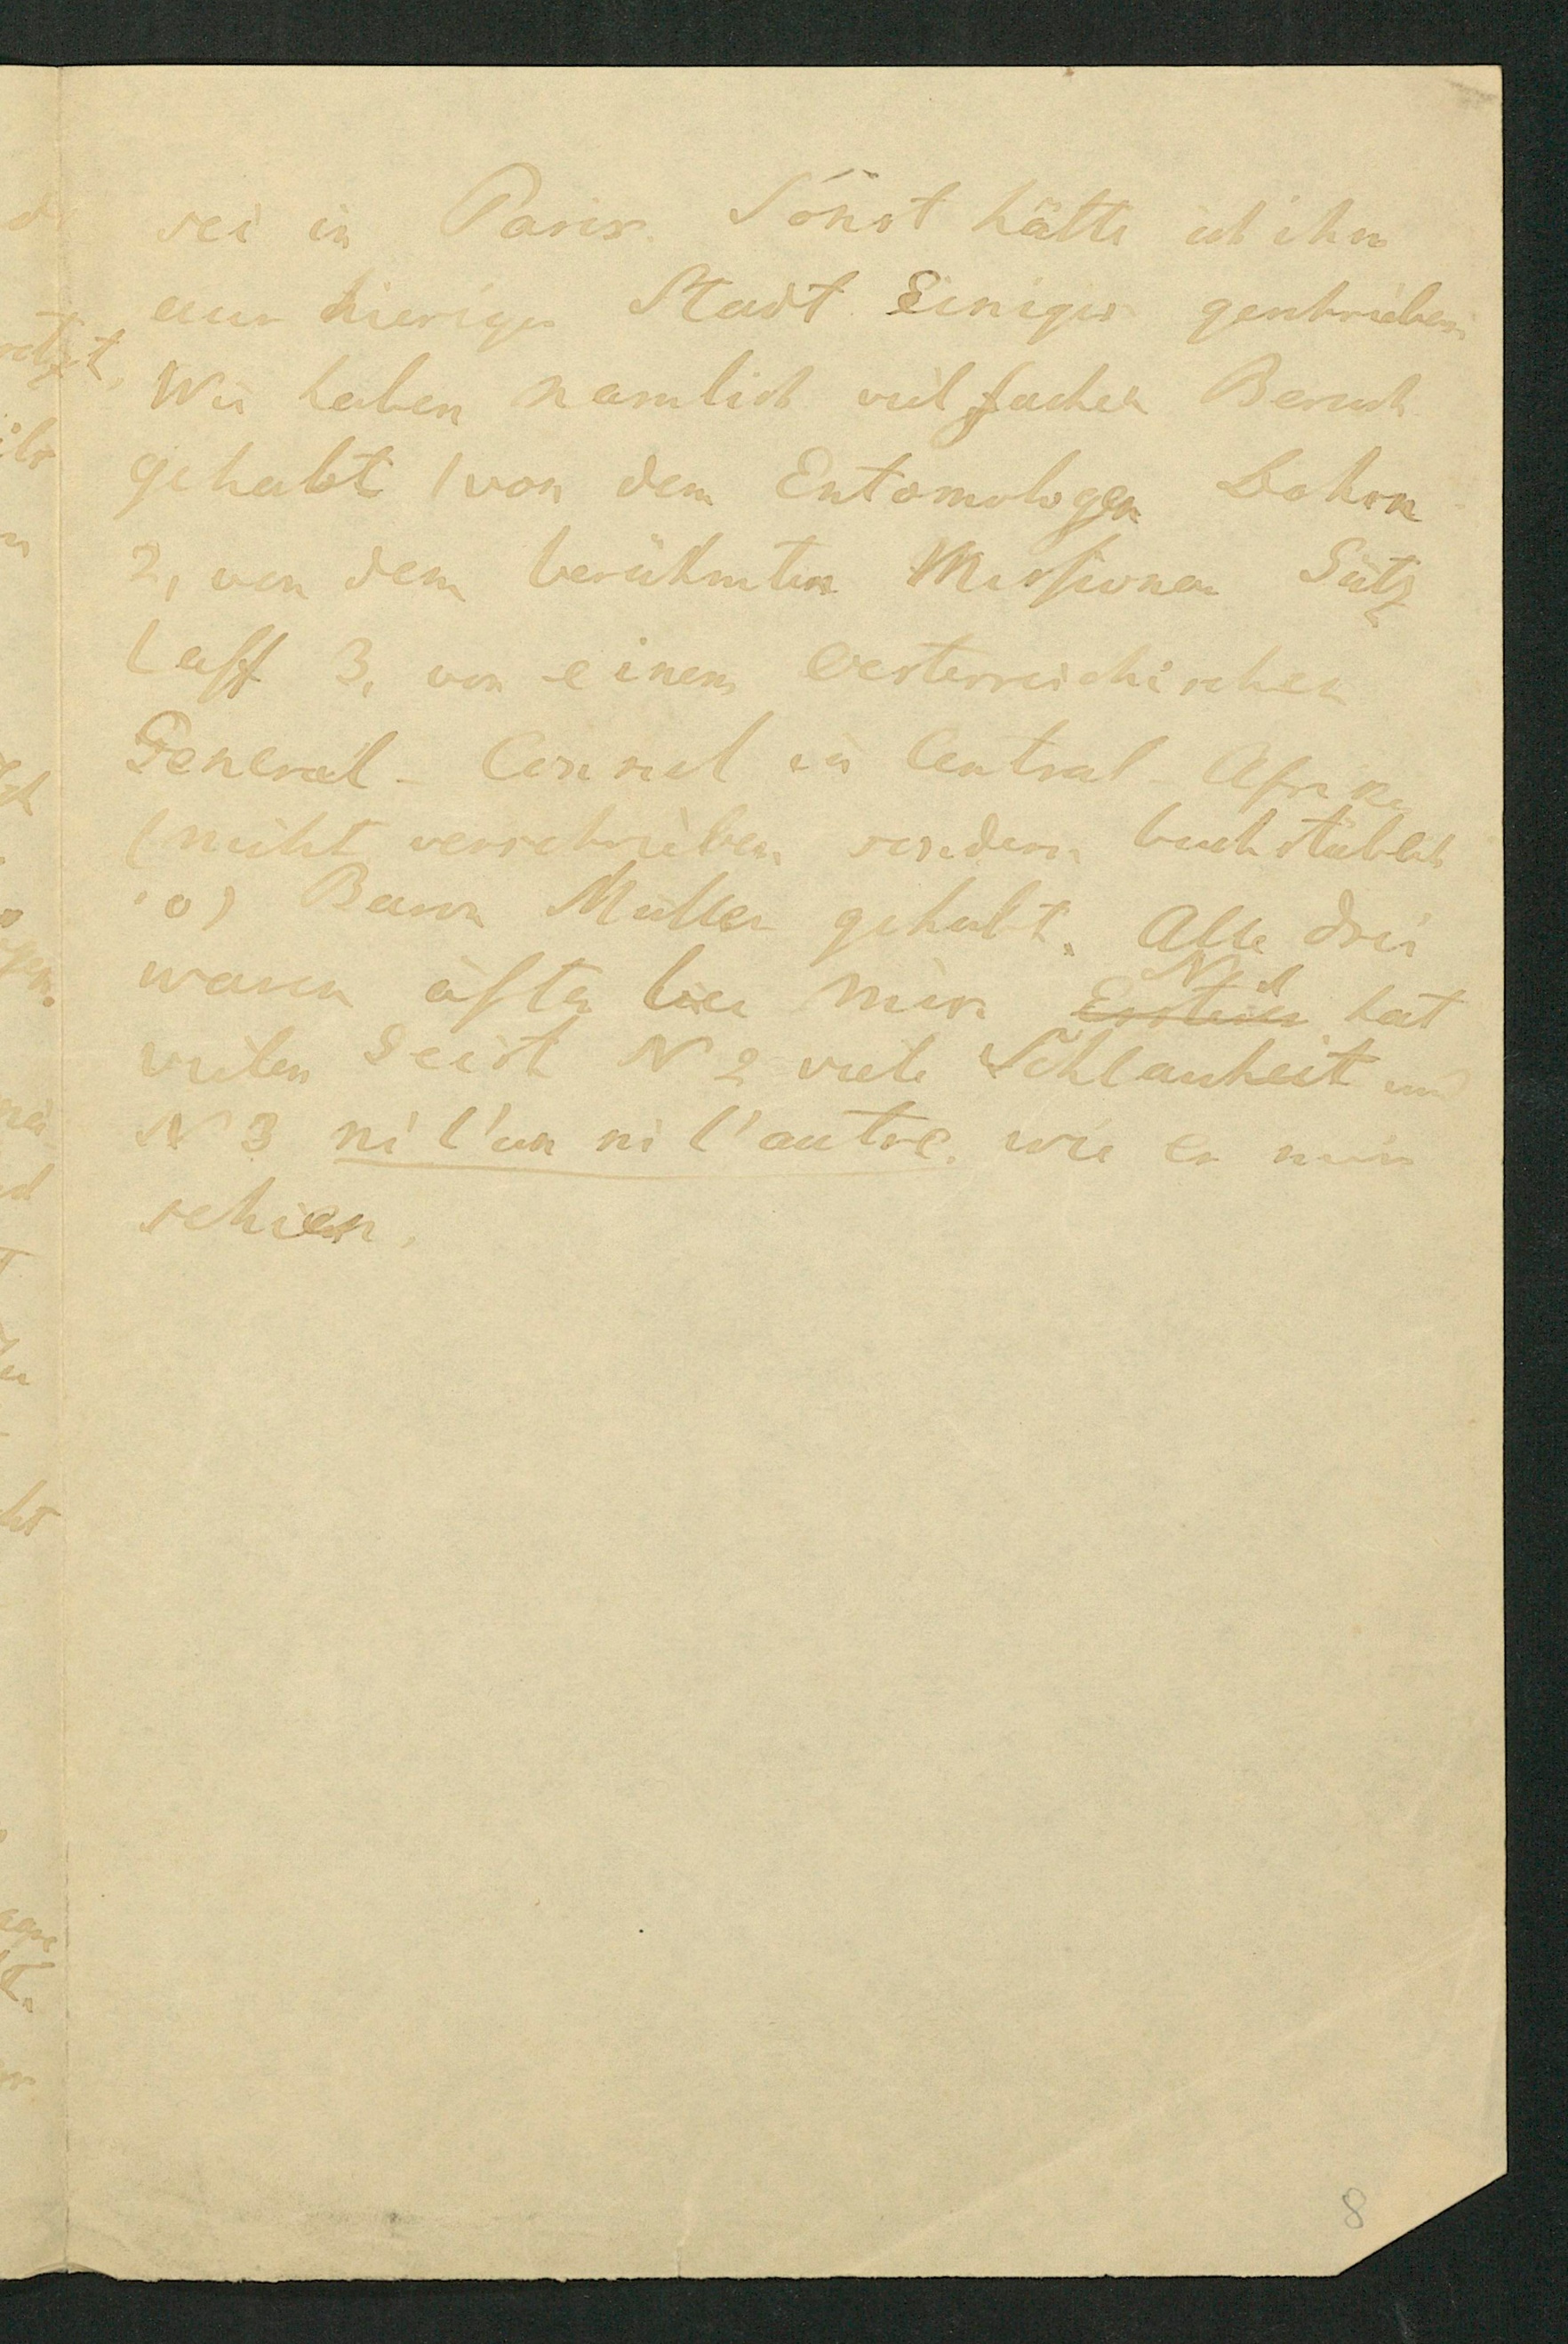 sei in Paris. Sonst hätte ich ihm
aus hiesiger Stadt Einiges geschrieben
Wir haben namlich vielfachen Besuch
gehabt 1 von dem Entomologen Dohrn
2, von dem berühmten Missionar Gütz
laff 3, von einem Oesterreichischen
General - Consul in Central - Afrika
(nicht verschrieben sondern buchstablich
so) Baron Müller gehabt. Alle drei
waren öfter bei mir. N 1 hat
vielen Geist N 2 viele Schlauheit und
N 3 ni l'un ni l'autre. wie es mir
schien.
8